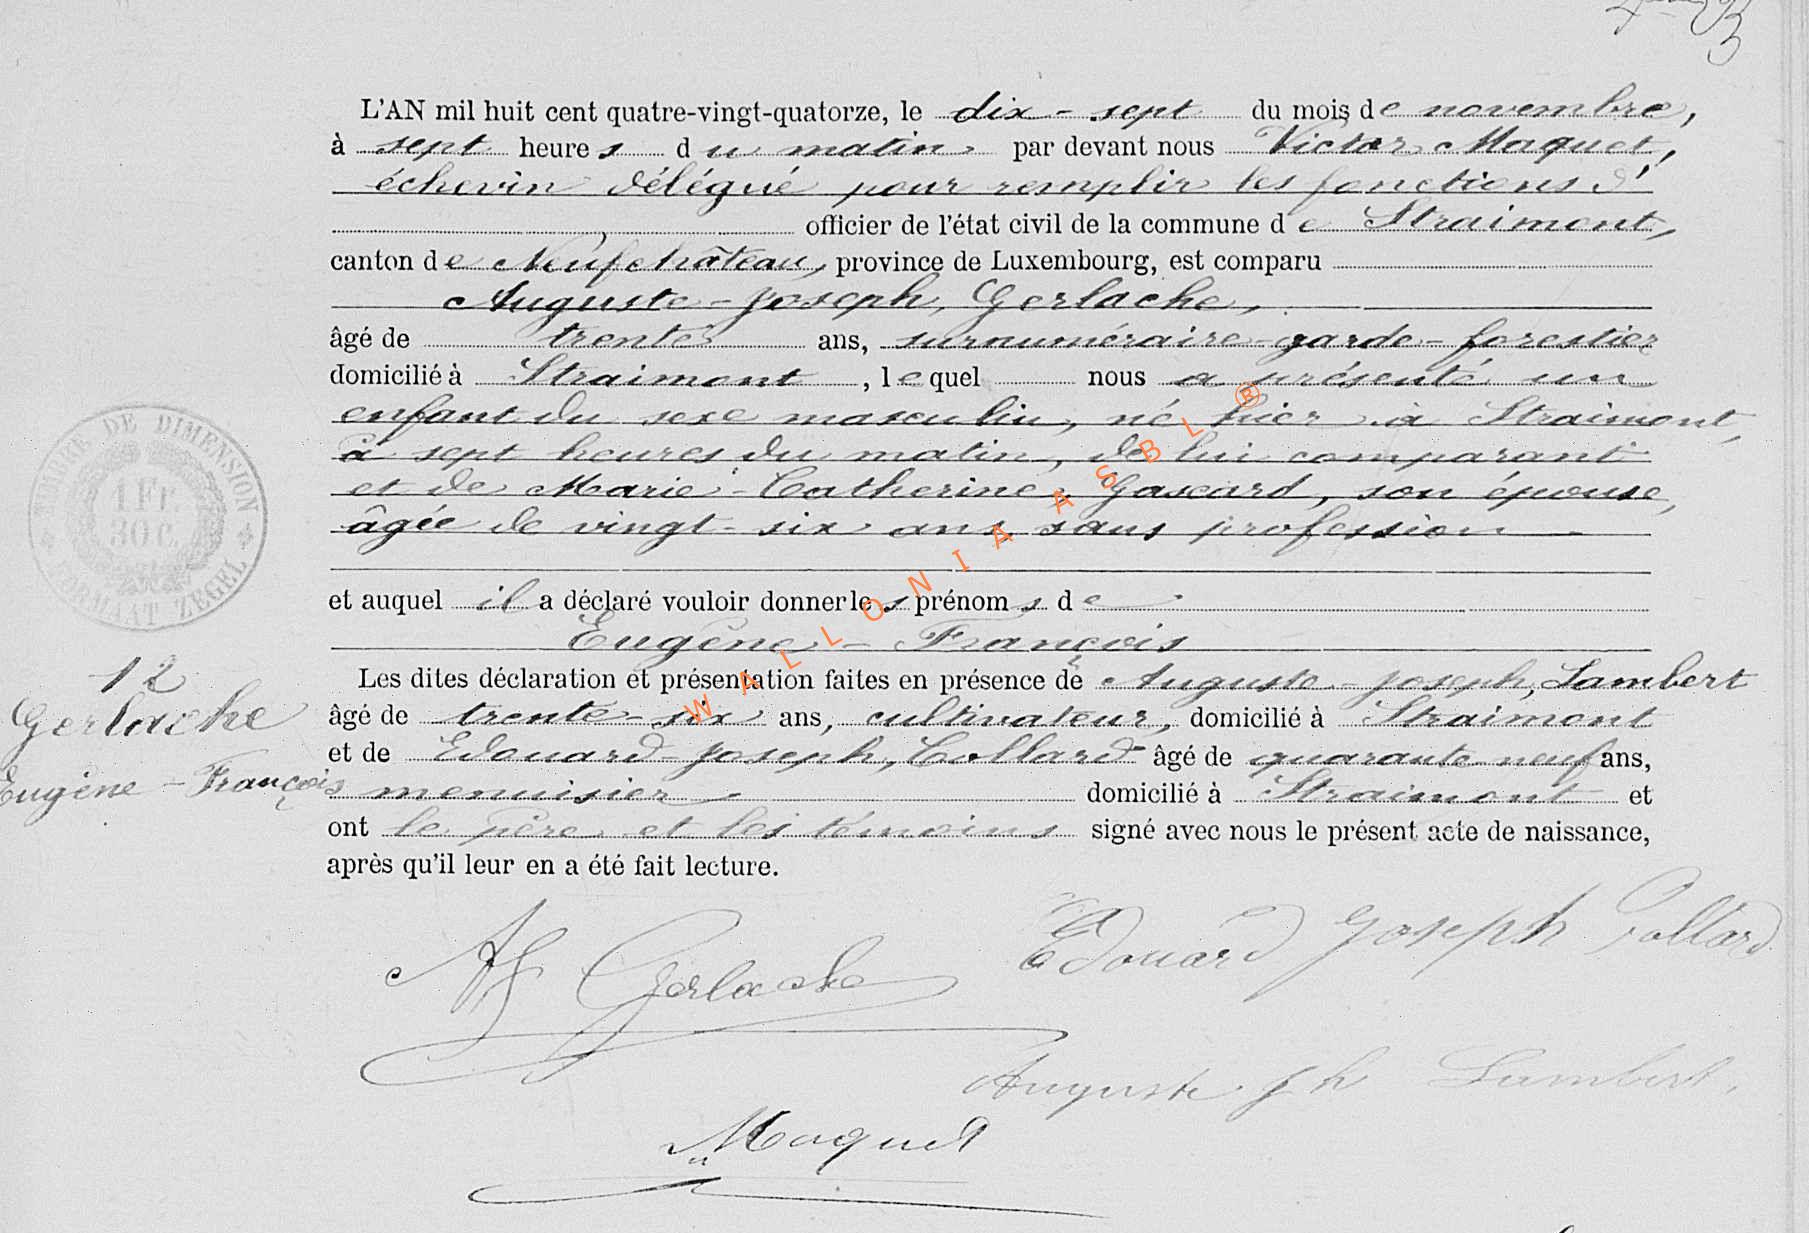 L'AN mil huit cent quatre-vingt-quatorze, le dix-sept du mois de novembre,
à sept heures du matin, par devant nous Victor Maquet,
échevin délégué pour remplir les fonctions d'
officier de l'état civil de la commune de Straimont,
canton de Neufchâteau, province de Luxembourg, est comparu
Auguste-Joseph, Gerlache,
âgé de trente ans, surnuméraire-garde-forestier
domicilié à Straimont, lequel nous a présenté un
enfant du sexe masculin, né hier à Straimont,
à sept heures du matin, de lui comparant
et de Marie-Catherine, Gascard, son épouse,
âgée de vingt-six ans, sans profession
et auquel il a déclaré vouloir donner les prénoms de
Eugène-François
Les dites déclaration et présentation faites en présence de Auguste-Joseph, Lambert
âgé de trente-six ans, cultivateur, domicilié à Straimont
et de Edouard-Joseph, Collard âgé de quarante-neuf ans,
menuisier, domicilié à Straimont et
ont le père et les témoins signé avec nous le présent acte de naissance,
après qu'il leur en a été fait lecture.
TIMBRE DE DIMENSION
1 Fr.
30 C.
FORMAAT ZEGEL
12
Gerlache
Eugène-François
AJ Gerlache
Edouard Joseph Collard
Auguste Jh Lambert.
Maquet
WALLONIA ASBL ®